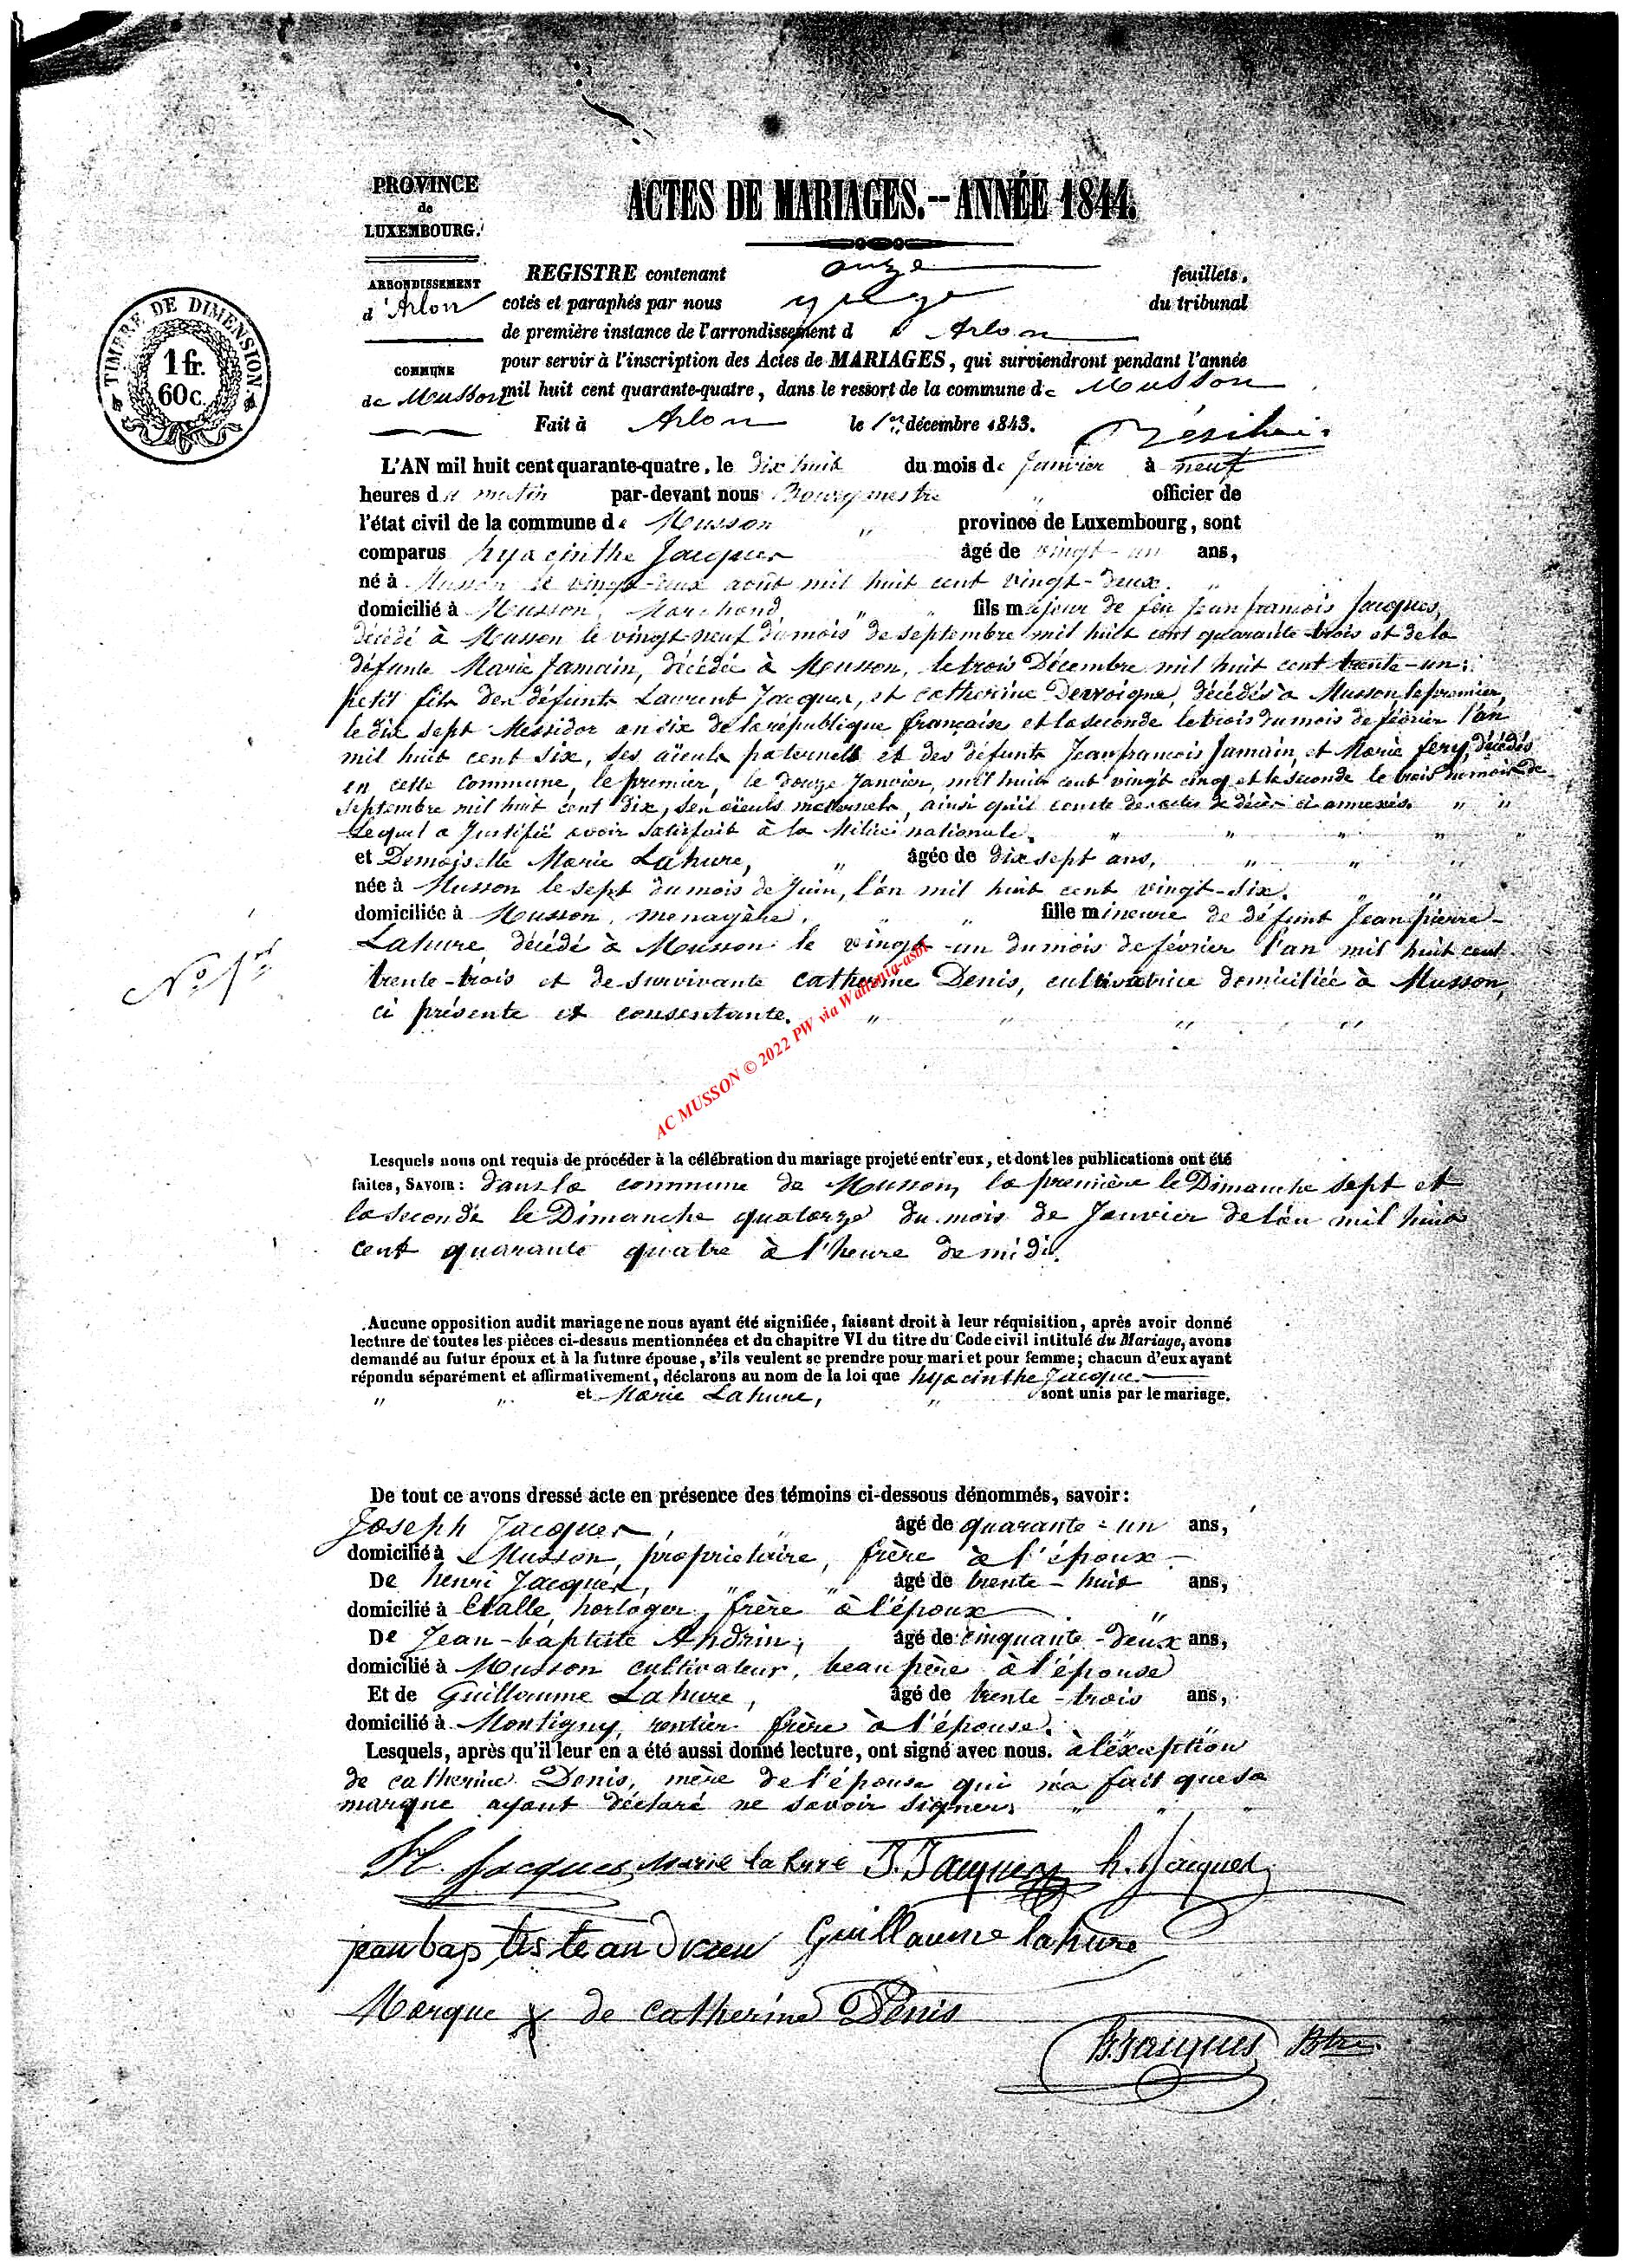 PROVINCE
de
LUXEMBOURG.
ARRONDISSEMENT
d'Arlon
COMMUNE
de Musson
TIMBRE DE DIMENSION
1 fr.
60 c.
ACTES DE MARIAGES.-- ANNÉE 1844.
REGISTRE contenant onze feuillets,
cotés et paraphés par nous juge du tribunal
de première instance de l'arrondissement d'Arlon
pour servir à l'inscription des Actes de MARIAGES, qui surviendront pendant l'année
mil huit cent quarante-quatre, dans le ressort de la commune de Musson
Fait à Arlon le 1er décembre 1843.
L'AN mil huit cent quarante-quatre, le dix huit du mois de Janvier à neuf
heures du matin par-devant nous Bourgmestre " officier de
l'état civil de la commune de Musson " province de Luxembourg, sont
comparus hyacinthe Jacques âgé de vingt-un ans,
né à Musson le vingt-deux août mil huit cent vingt-deux. "
domicilié à Musson, Marchand " " fils majeur de feu Jean françois Jacques,
décédé à Musson le vingt-neuf du mois de septembre mil huit cent quarante-trois et de la
défunte Marie Jamain, décédée à Musson, le trois Décembre mil huit cent trente-un;
petit fils des défunts Laurent Jacques, et catherine Dervoigne, décédés à Musson, le premier,
le dix sept Messidor an dix de la république française et la seconde le trois du mois de février l'an
mil huit cent six, ses aïeuls paternels et des défunts Jean françois Jamain, et Marie fery, décédés
en cette commune, le premier, le douze Janvier, mil huit cent vingt cinq et la seconde le trois du mois de
septembre mil huit cent dix, ses aïeuls maternels, ainsi qu'il conste des actes de décès ci annexés. " "
Lequel a Justifié avoir satisfait à la Milice nationale. " " " " "
et Demoiselle Marie Lahure, " âgée de dix sept ans, " " "
née à Musson le sept du mois de Juin, l'an mil huit cent vingt-six. " "
domiciliée à Musson, menagère, " " fille mineure de défunt Jean pierre
Lahure, décédé à Musson le vingt-un du mois de février l'an mil huit cent
trente-trois et de survivante catherine Denis, cultivatrice domiciliée à Musson,
ci présente et consentante. " " " "
No 1er
AC MUSSON © 2022 PW via Wallonia-asbl
Lesquels nous ont requis de procéder à la célébration du mariage projeté entr'eux, et dont les publications ont été
faites, SAVOIR: dans la commune de Musson, la première le Dimanche sept et
la seconde le Dimanche quatorze du mois de Janvier de l'an mil huit
cent quarante quatre à l'heure de midi.
Aucune opposition audit mariage ne nous ayant été signifiée, faisant droit à leur réquisition, après avoir donné
lecture de toutes les pièces ci-dessus mentionnées et du chapitre VI du titre du Code civil intitulé du Mariage, avons
demandé au futur époux et à la future épouse, s'ils veulent se prendre pour mari et pour femme; chacun d'eux ayant
répondu séparément et affirmativement, déclarons au nom de la loi que hyacinthe Jacques
" " et Marie Lahure, " sont unis par le mariage.
De tout ce avons dressé acte en présence des témoins ci-dessous dénommés, savoir:
Joseph Jacques, " âgé de quarante-un ans,
domicilié à Musson, propriétaire, frère à l'époux
De henri Jacques, " " âgé de trente-huit ans,
domicilié à Etalle, horloger, frère à l'époux "
De Jean-baptiste Andrin, âgé de cinquante-deux ans,
domicilié à Musson cultivateur, beau père à l'épouse
Et de Guillaume Lahure, âgé de trente-trois ans,
domicilié à Montigny, rentier frère à l'épouse.
Lesquels, après qu'il leur en a été aussi donné lecture, ont signé avec nous. à l'exception
de catherine Denis, mère de l'épouse qui n'a fait que sa
marque ayant déclaré ne savoir signer. " " "
H. Jacques Marie lahure J. Jacques h. Jacques
jean baptiste andrien Guillaume lahure
Marque x de catherine Denis
Jacques Btre.